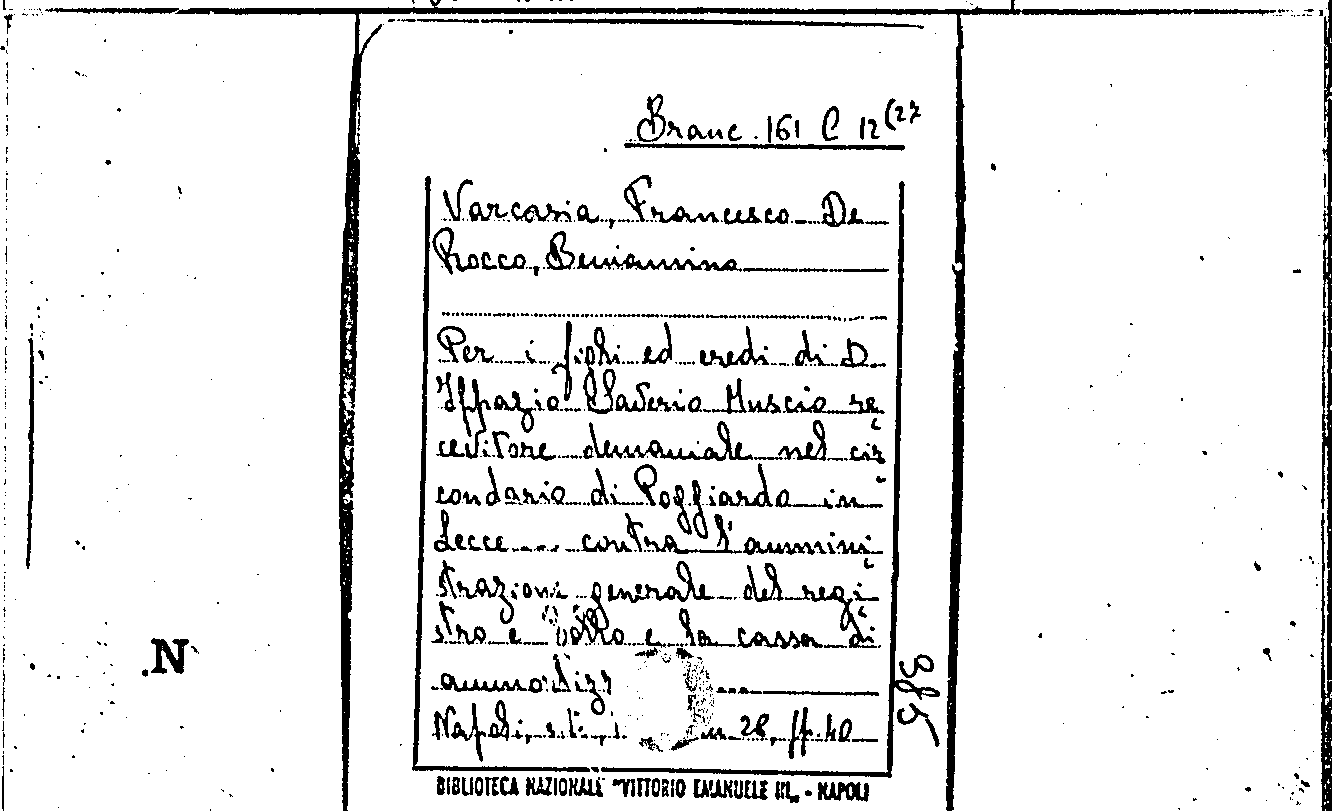 Branc. 161 C 12(27
Varcasia, Francesco De
Rocco, Beniamino
Per i figli ed eredi di D.
Ippazio Saverio Muscio re
cevitore demaniale nel cir
condario di Poggiardo in
Lecce ... contro l'ammini
strazione generale del regi
stro e bollo e la cassa di
ammortizz ...
Napoli, s.t., 28, pp. 40
385
N
BIBLIOTECA NAZIONALE "VITTORIO EMANUELE III„ - NAPOLI